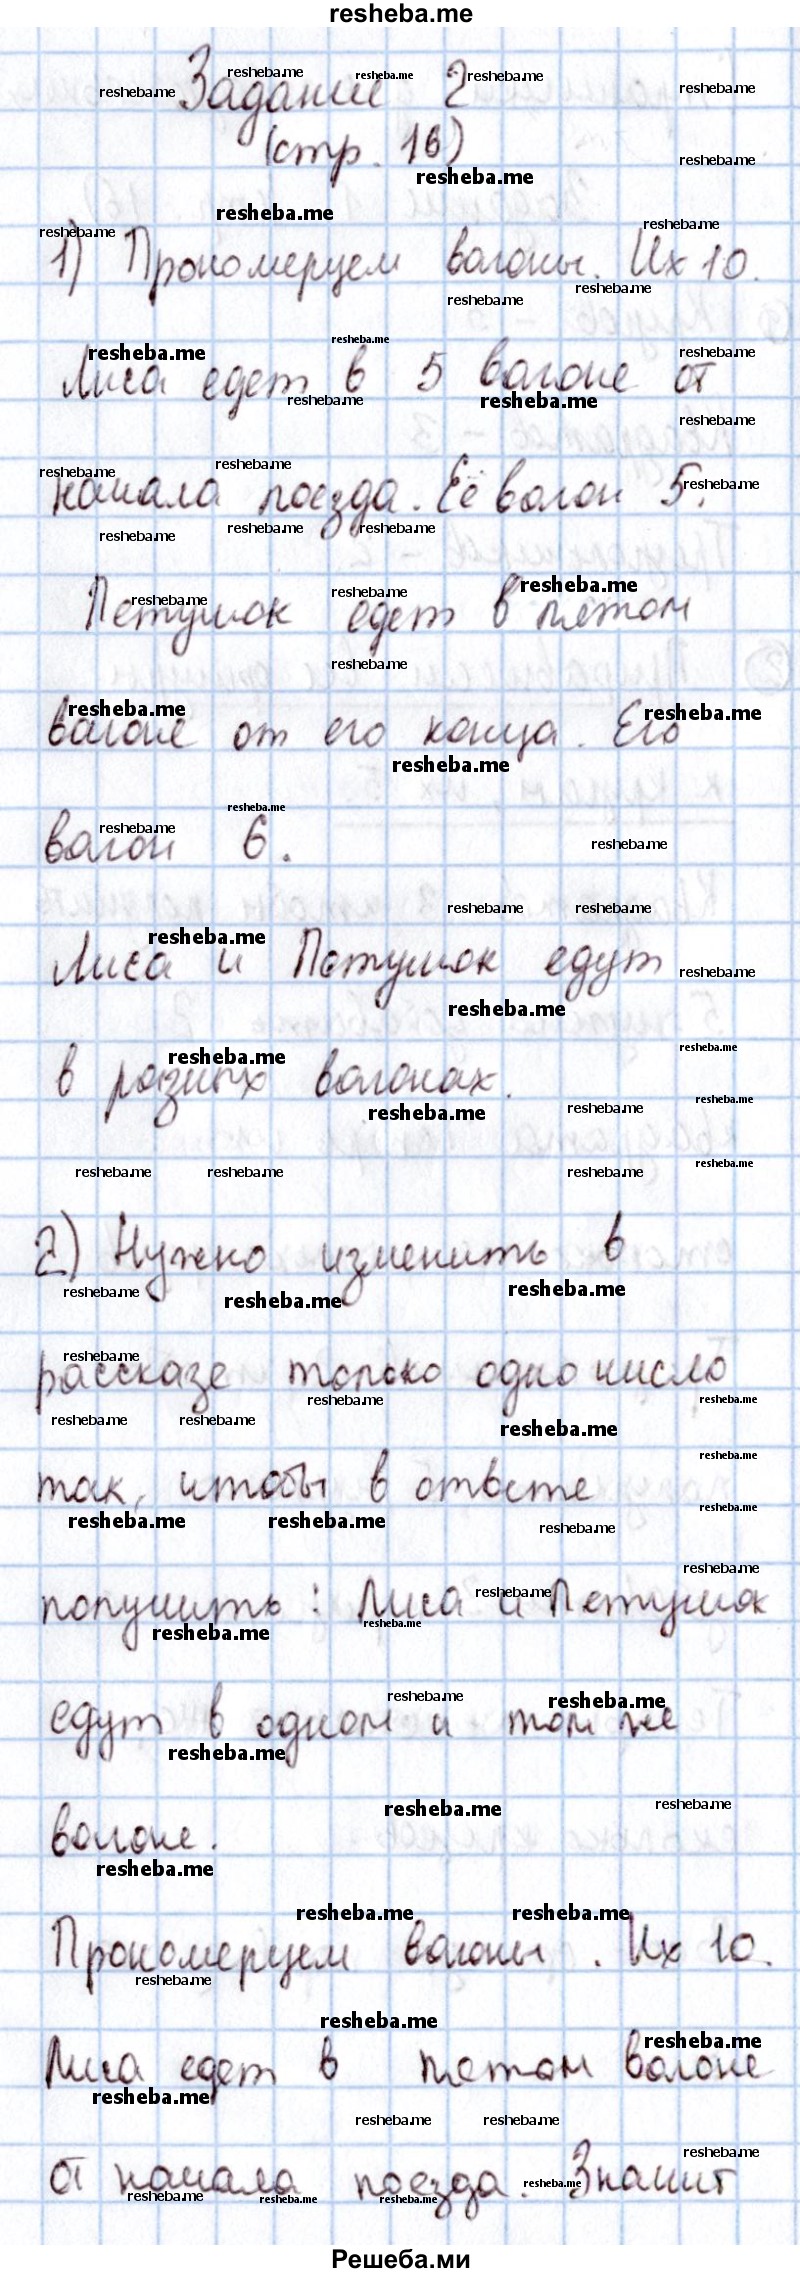 resheba.me
Задание 2
(стр. 16)
1) Прономеруем вагоны. Их 10.
Лиса едет в 5 вагоне от
начала поезда. Её вагон 5.
Петушок едет в пятом
вагоне от его конца. Его
вагон 6.
Лиса и Петушок едут
в разных вагонах.
2) Нужно изменить в
рассказе только одно число
так, чтобы в ответе
получить: Лиса и Петушок
едут в одном и том же
вагоне.
Прономеруем вагоны. Их 10.
Лиса едет в пятом вагоне
от начала поезда. Значит
Решеба.ми